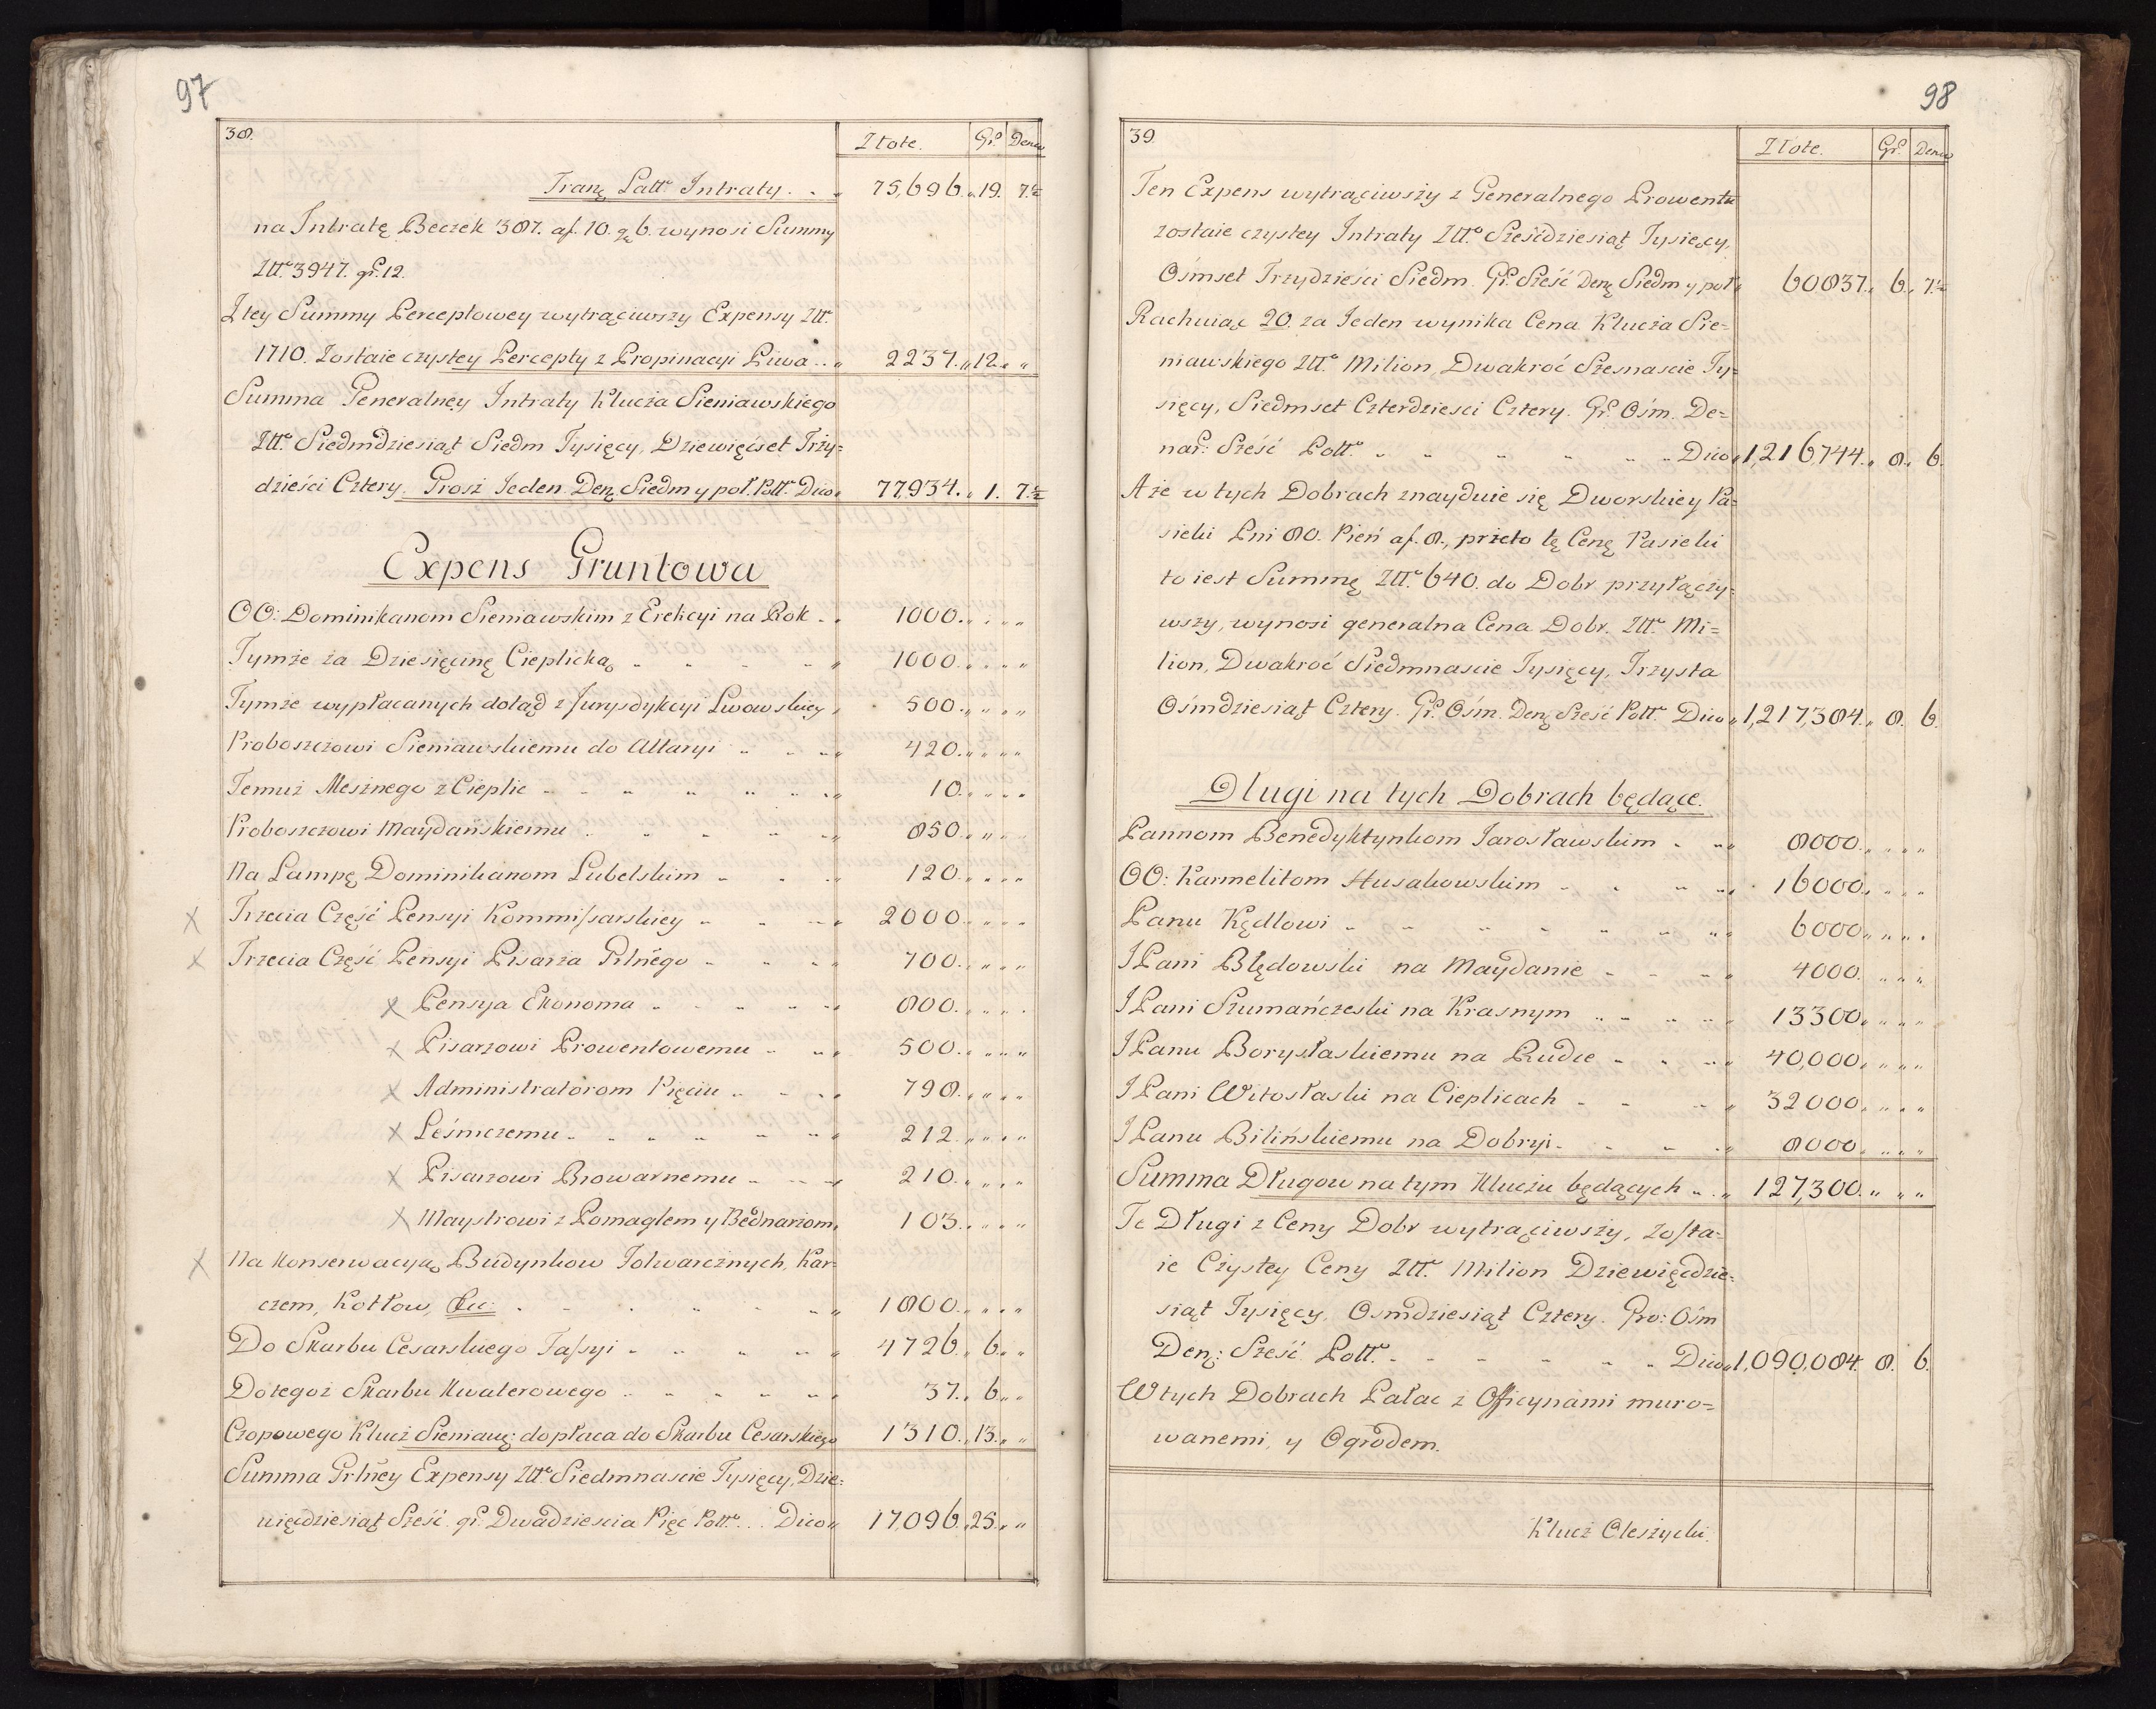 97
38.
Złote. Gr. Denar
Tranz Latt Intraty. . „ 75,696. „ 19. 7½
na Intratę Beczek 387. af. 10. g 6. wynosi Summy
Złł. 3947. gr. 12.
Z tey Summy Perceptowey wytrąciwszy Expensy Złł.
1710. Zostaie czystey Percepty z Propinacyi Piwa . . „ 2237. „ 12. „ „
Summa Generalney Intraty Klucza Sieniawskiego
Złł. Siedmdziesiąt Siedm Tysięcy, Dziewięćset Trzy=
dzieści Cztery. Grosz Jeden Den. Siedm y poł. Poll. Dico „ 77,934. „ 1. 7½
Expens Gruntowa
OO: Dominikanom Sieniawskim z Erekcyi na Rok . „ 1000. „ „ „
Tymże za Dziesięcinę Cieplicką „ 1000. „ „ „
Tymże wypłacanych dotąd z Jurysdykcyi Lwowskiey „ 500. „ „ „
Proboszczowi Sieniawskiemu do Altaryi „ 420. „ „ „
Temuż Mesznego z Cieplic „ 10. „ „ „
Proboszczowi Maydańskiemu „ 850. „ „ „
Na Lampę Dominikanom Lubelskim „ 120. „ „ „
x Trzecia Część Pensyi Kommissarskiey „ 2000. „ „ „
x Trzecia Część Pensyi Pisarza Grlnego „ 700. „ „ „
x Pensya Ekonoma „ 800. „ „ „
x Pisarzowi Prowentowemu „ 500. „ „ „
x Administratorom Pięciu „ 798. „ „ „
x Leśniczemu „ 212. „ „ „
x Pisarzowi Browarnemu „ 210. „ „ „
x Maystrowi z Pomaglem y Bednarzom „ 103. „ „ „
x Na Konserwacyą Budynkow Folwarcznych, Kar=
czem, Kotłow, &c: „ 1800. „ „ „
Do Skarbu Cesarskiego Fassyi „ 4726. „ 6. „
Do tegoż Skarbu Kwaterowego „ 37. „ 6. „
Czopowego Klucz Sieniaw: dopłaca do Skarbu Cesarskiego 1310. „ 13. „
Summa Grlney Expensy Złł. Siedmnascie Tysięcy, Dzie=
więćdziesiąt Sześć. gr. Dwadziescia Pięć Poll. . . Dico „ 17,096. „ 25. „ „
98
39.
Złote. Gr. Denar
Ten Expens wytrąciwszy z Generalnego Prowentu
zostaie czystey Intraty Złł. Sześćdziesiąt Tysięcy,
Ośmset Trzydzieści Siedm. Gr. Sześć Den. Siedm y poł „ 60837. „ 6. „ 7½
Rachuiąc 20. za Jeden wynika Cena Klucza Sie=
niawskiego Złł. Milion, Dwakroć Szesnascie Ty=
sięcy, Siedmset Czterdziesci Cztery. Gr. Ośm. De=
nar: Sześć Poll. „ Dico „ 1,216,744. „ 8. „ 6.
A że w tych Dobrach znayduie się Dworskiey Pa=
sieki Pni 80. Pień af. 8., przeto tę Cenę Pasieki
to iest Summę Złł. 640. do Dobr przyłączy=
wszy, wynosi generalna Cena Dobr. Złł. Mi=
lion, Dwakroć Siedmnascie Tysięcy, Trzysta
Ośmdziesiąt Cztery. Gr. Ośm. Den. Sześć Poll. Dico „ 1,217,384. „ 8. 6.
Dlugi na tych Dobrach będące.
Pannom Benedyktynkom Jarosławskim „ 8000. „ „ „
OO: Karmelitom Husakowskim „ 16000. „ „ „
Panu Kędlowi „ 6000. „ „ „
JPani Błędowski na Maydanie „ 4000. „ „ „
JPani Szumańczeski na Krasnym „ 13300. „ „ „
JPanu Borysłaskiemu na Rudce „ 40,000. „ „ „
JPani Witosłaski na Cieplicach „ 32000. „ „ „
JPanu Bilińskiemu na Dobryi „ 8000. „ „ „
Summa Długow na tym Kluczu będących „ 127,300. „ „ „
Te Długi z Ceny Dobr wytrąciwszy, zosta=
ie Czystey Ceny Złł. Milion Dziewięćdzie=
siąt Tysięcy, Osmdziesiąt Cztery. Gro: Ośm
Den: Sześć Poll. „ Dico „ 1,090,084. 8. 6.
W tych Dobrach Pałac z Officynami muro=
wanemi, y Ogrodem.
Klucz Oleszycki.